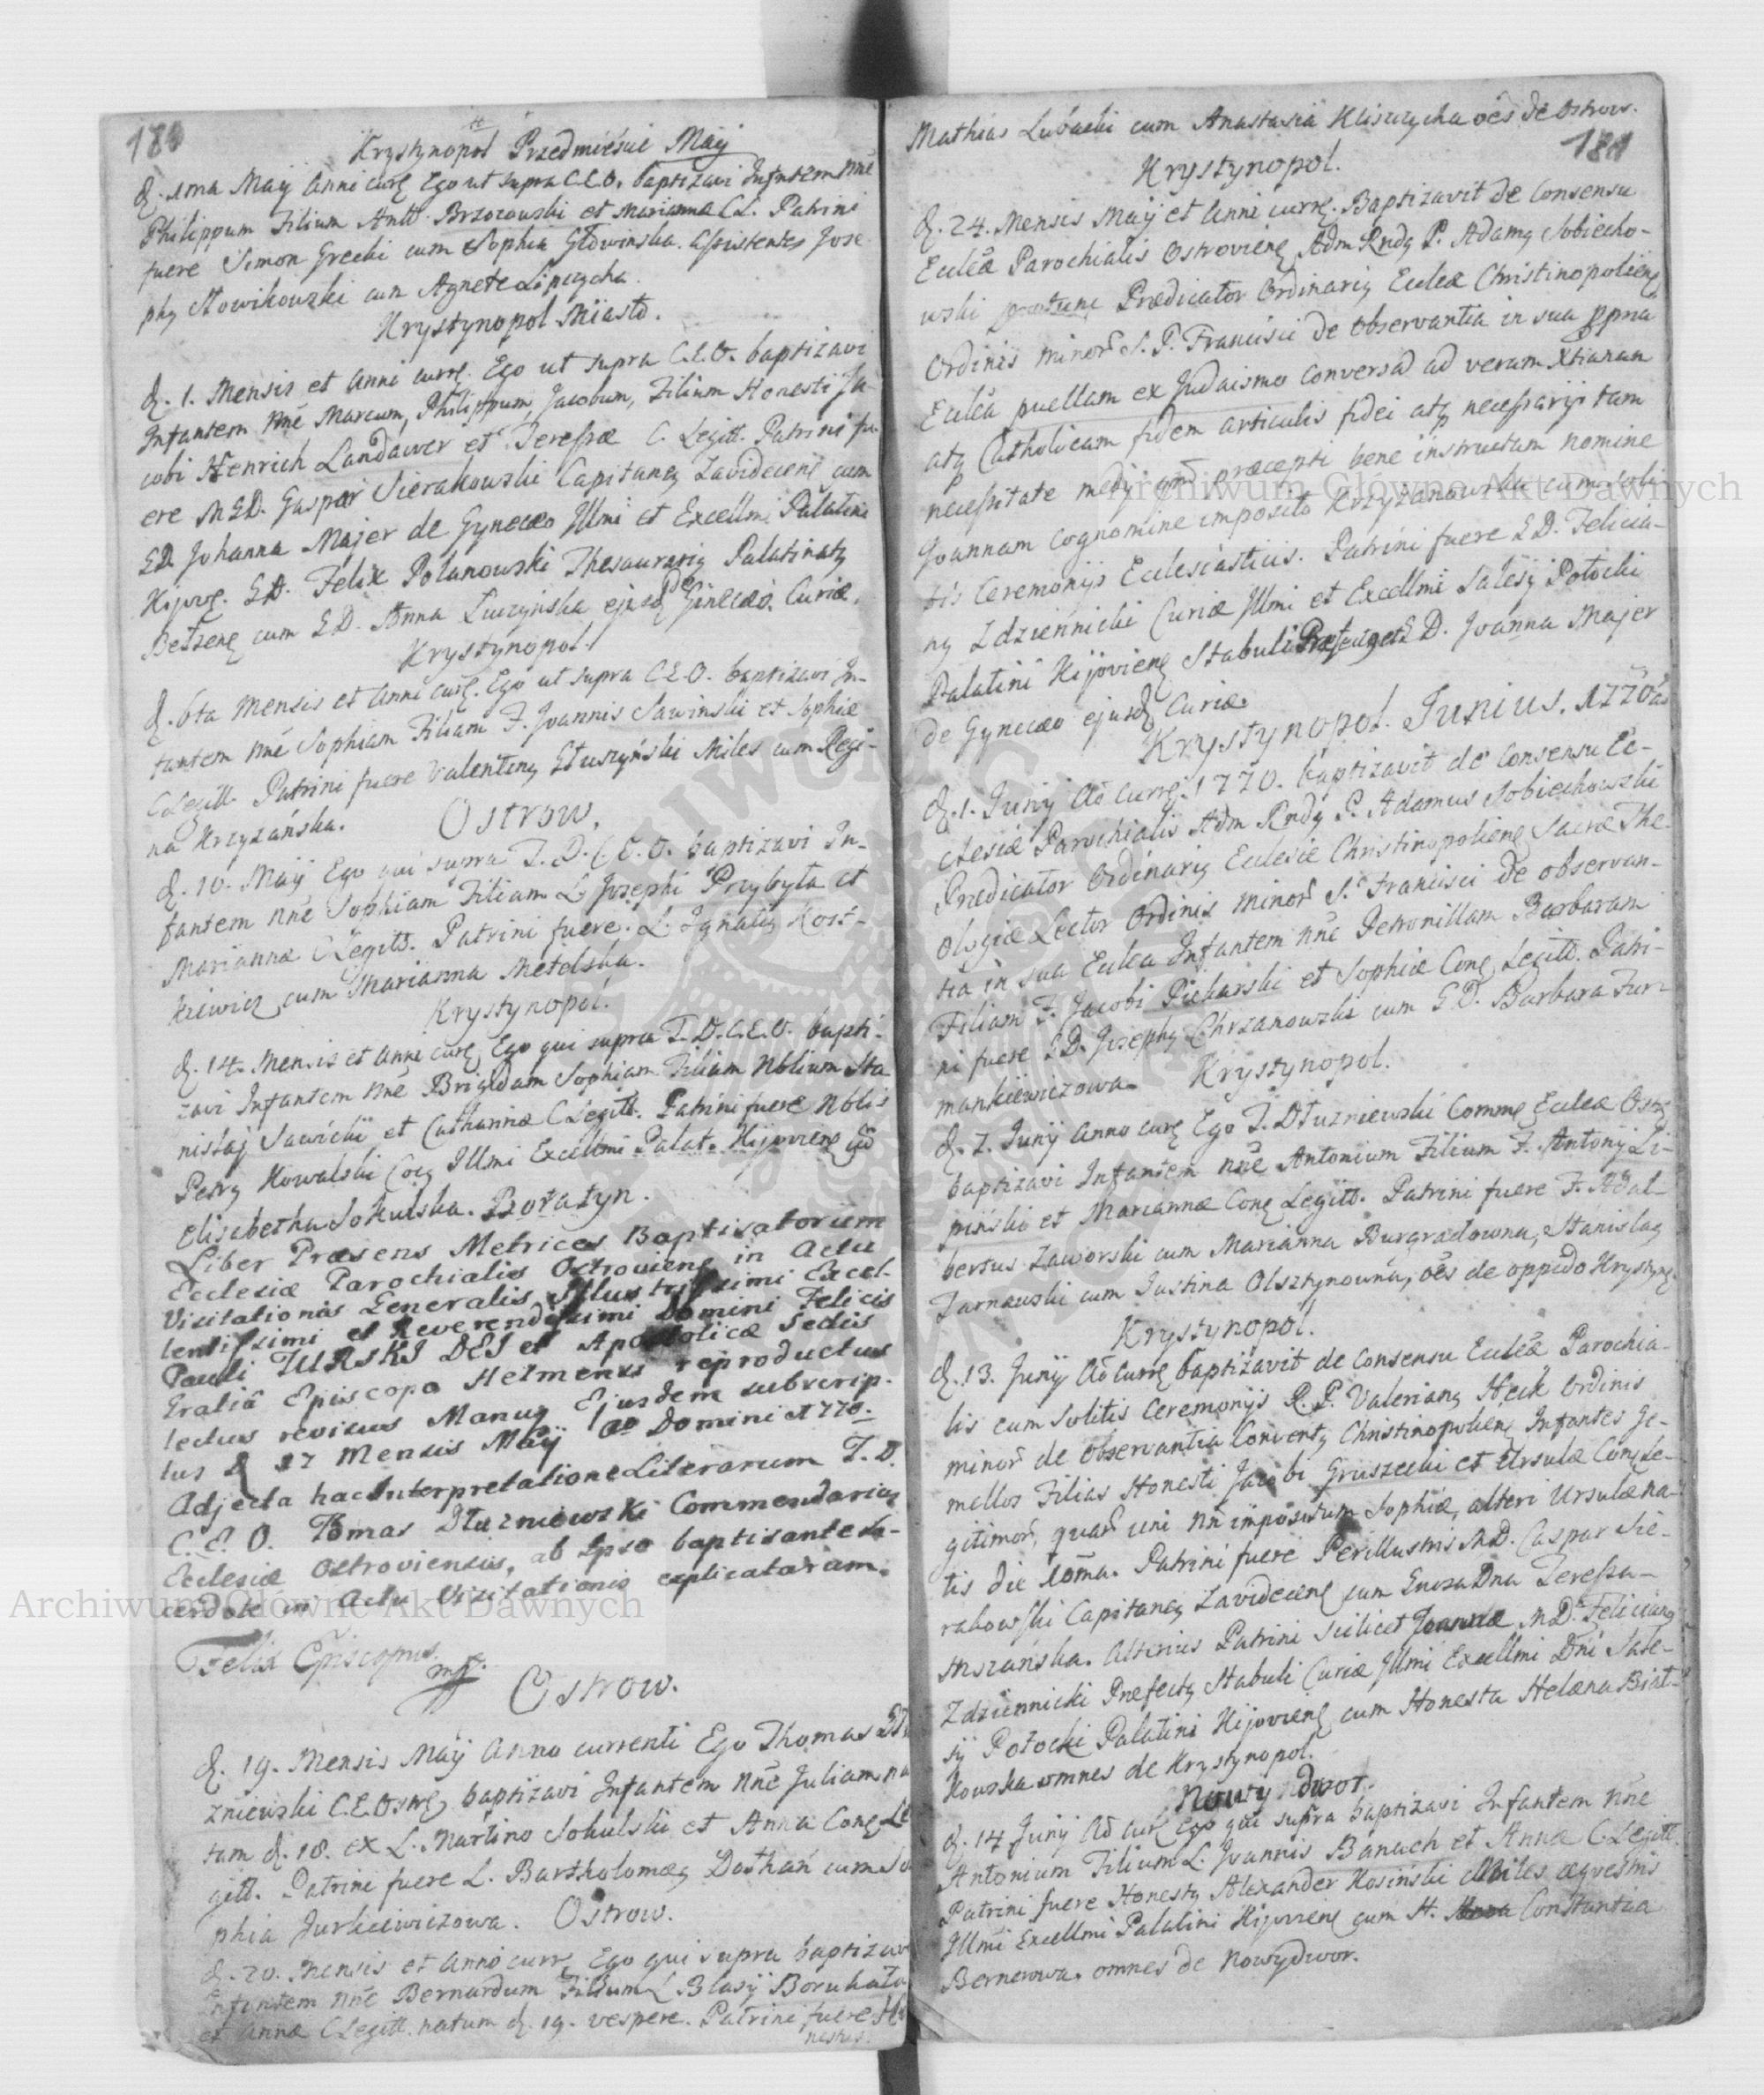 180
Krystynopol Przedmiescie Maij
d. 1ma Maij Anni curr. Ego ut supra C.E.O. baptizavi Infantem nne
Philippum Filium Antt. Brzozowski et Mariannæ C.L. Patrini
fuere Simon Grecki cum Sophia Głowinska. Assistentes Jose-
phg Nowikowski cum Agnete Lipczycha.
Krystynopol Miasto.
d. 1. Mensis et Anni curr. Ego ut supra C.E.O. baptizavi
Infantem nne Marcum, Philippum, Jacobum, Filium Honesti Ja-
cobi Henrich Landawer et Teressæ C. Legitt. Patrini fu-
ere MGD. Gaspar Sierakowski Capitang Zavidecens cum
GD. Johanna Majer de Gynecæo Illmi et Excellmi Palatini
Kijovs. GD. Felix Polanowski Thesaurarig Palatinatg
Betzens cum GD. Anna Łuczyńska ejusd de Ginecæo Curiæ.
Krystynopol.
d. 6ta Mensis et Anni curr. Ego ut supra C.E.O. baptizavi In-
fantem nne Sophiam Filiam F. Joannis Sawinski et Sophiæ
C Legitt. Patrini fuere Valenting Głuszyński Miles cum Regi-
na Krzyżańska.
Ostrow.
d. 10. Maij Ego qui supra T.D.C.E.O. baptizavi In-
fantem nne Sophiam Filiam L. Josephi Przybyła et
Mariannæ C Legitt. Patrini fuere. L. Ignatig Kost-
kiewicz cum Marianna Metelska.
Krystynopol.
d. 14. Mensis et Anni curr. Ego qui supra T.D.C.E.O. bapti-
zavi Infantem nne Brigidam Sophiam Filiam Nblium Sta
nislaj Sawicki et Catharinæ C Legitt. Patrini fuere Nblis
Petrg Kowalski Illmi Excellmi Palat. Kijoviens
Elisabetha Sokulska. Boratyn.
Liber Præsens Metrices Baptisatorum
Ecclesiæ Parochialis Ostroviens in Actu
Visitationis Generalis Illustrissimi Excel-
lentissimi et Reverendissimi Domini Felicis
Pauli TURSKI DEI et Apostolicæ Sedis
Gratiâ Episcopo Helmensis reproductus
lectus revisus Manug Ejusdem subscrip-
tus D 17 Mensis Maij Ao Domini 1770.
Adjecta hac Interpretatione Literarum T.D.
C.E.O. Tomas Dłuzniewski Commendarius
Ecclesiæ Ostroviensis, ab Ipso baptisante Sa-
cerdote in Actu Visitationis explicatarum.
Felix Episcopus
mp.
Ostrow.
d. 19. Mensis Maij Anno currenti Ego Thomas Dłu
zniewski C.E.Ostr. baptizavi Infantem nne Juliam na
tam d. 18. ex L. Martino Sokulski et Anna Cong Le
gitt. Patrini fuere L. Bartholomeg Dathań cum So
phia Jurkiewiczowa.
Ostrow.
d. 20. Mensis et Anno curr. Ego qui supra baptizavi
Infantem nne Bernardum Filium L Blasij Boruhała
et Annæ C Legitt. natum d. 19. vespere. Patrini fuere Ho
nestus.
Mathias Lubacki cum Anastasia Kliszczycha oēs de Ostrow.
181
Krystynopol.
d. 24. Mensis Maij et Anni curr. Baptizavit de Consensu
Ecclæ Parochialis Ostroviens Adm Rndg P. Adamg Sobiecho-
wski protunc Prædicator Ordinarig Ecclæ Christinopoliens
Ordinis Minor S. P. Francisci de Observantia in sua ppria
Ecclâ puellam ex Judaismo conversâ ad veram Xtianam
atq Catholicam fidem articulis fidei atq necessarijs tam
necessitate medij qm præcepti bene instructam nomine
Joannam cognomine imposito Krzyżanowska cum soli-
tis Ceremonijs Ecclesiasticis. Patrini fuere GD. Felicia-
ng Zdziennicki Curiæ Illmi et Excellmi Salesij Potocki
Palatini Kijoviens Stabuli Præfectg et GD. Joanna Majer
de Gynecæo ejusd Curiæ.
Krystynopol. Junius. 1770
d. 1. Junij Ao curr. 1770. baptizavit de Consensu Ec-
clesiæ Parochialis Adm Rndg P. Adamus Sobiechowski
Prædicator Ordinarig Ecclesiæ Christinopoliens Sacræ The-
ologiæ Lector Ordinis Minor S. Francisci de observan-
tia in sua Ecclea Infantem nne Petronillam Barbaram
Filiam F. Jacobi Piekarski et Sophiæ Cong Legitt. Patri-
ni fuere GD. Josephg Chrzanowski cum GD. Barbara Fur-
mankiewiczowa.
Krystynopol.
d. 7. Junij Anno curr Ego T. Dłuzniewski Comme Ecclæ Ostr
baptizavi Infantem nne Antonium Filium F. Antonij Li-
piński et Mariannæ Cong Legitt. Patrini fuere F. Adal-
bertus Zaworski cum Marianna Burgradowna, Stanislag
Tarnawski cum Justina Olsztynowna, oēs de oppido Krystyno.
Krystynopol.
d. 13. Junij Ao curr baptizavit de Consensu Ecclæ Parochia-
lis cum solitis Ceremonijs R. P. Valeriang Heck Ordinis
Minor de Observantia Conventg Christinopoliens Infantes Ge-
mellos Filias Honesti Jacobi Gruszecki et Ursulæ Cong Le-
gitimor, quar uni nn impositum Sophiæ, alteri Ursulæ na-
tis die 10ma. Patrini fuere Perillustris MD. Caspar Sie-
rakowski Capitang Zavidecens cum Gnosa Dna Teressa
Alterius Patrini scilicet MD. Feliciang
Zdziennicki Præfectg Stabuli Curiæ Illmi Excellmi Dni Sale-
sij Potocki Palatini Kijoviens cum Honesta Helæna Biał-
kowska omnes de Krystynopol.
Nowy dwor.
d. 14 Junij Ao curr Ego qui supra baptizavi Infantem nne
Antonium Filium L. Joannis Banach et Annæ C Legitt.
Patrini fuere Honestg Alexander Kosiński Miles æqvestris
Illmi Excellmi Palatini Kijoviens cum H. Constantia
Bernerowa. omnes de Nowydwor.
Archiwum Główne Akt Dawnych
Archiwum Główne Akt Dawnych